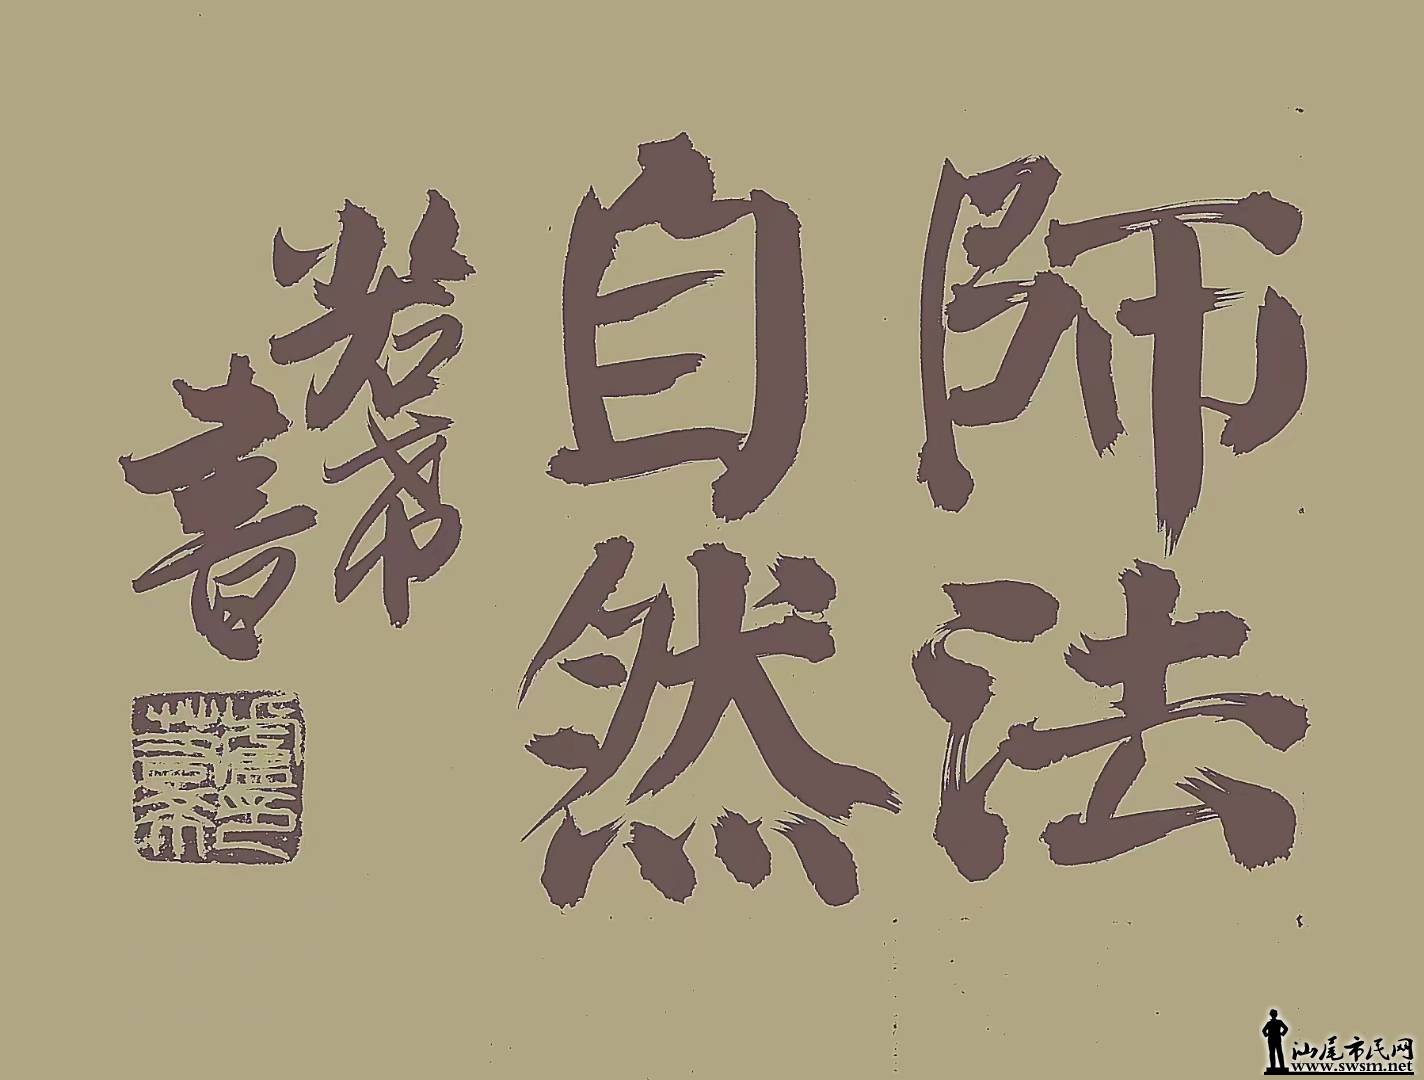 師法
自然
若希
書
汕尾市民网
www.swsm.net